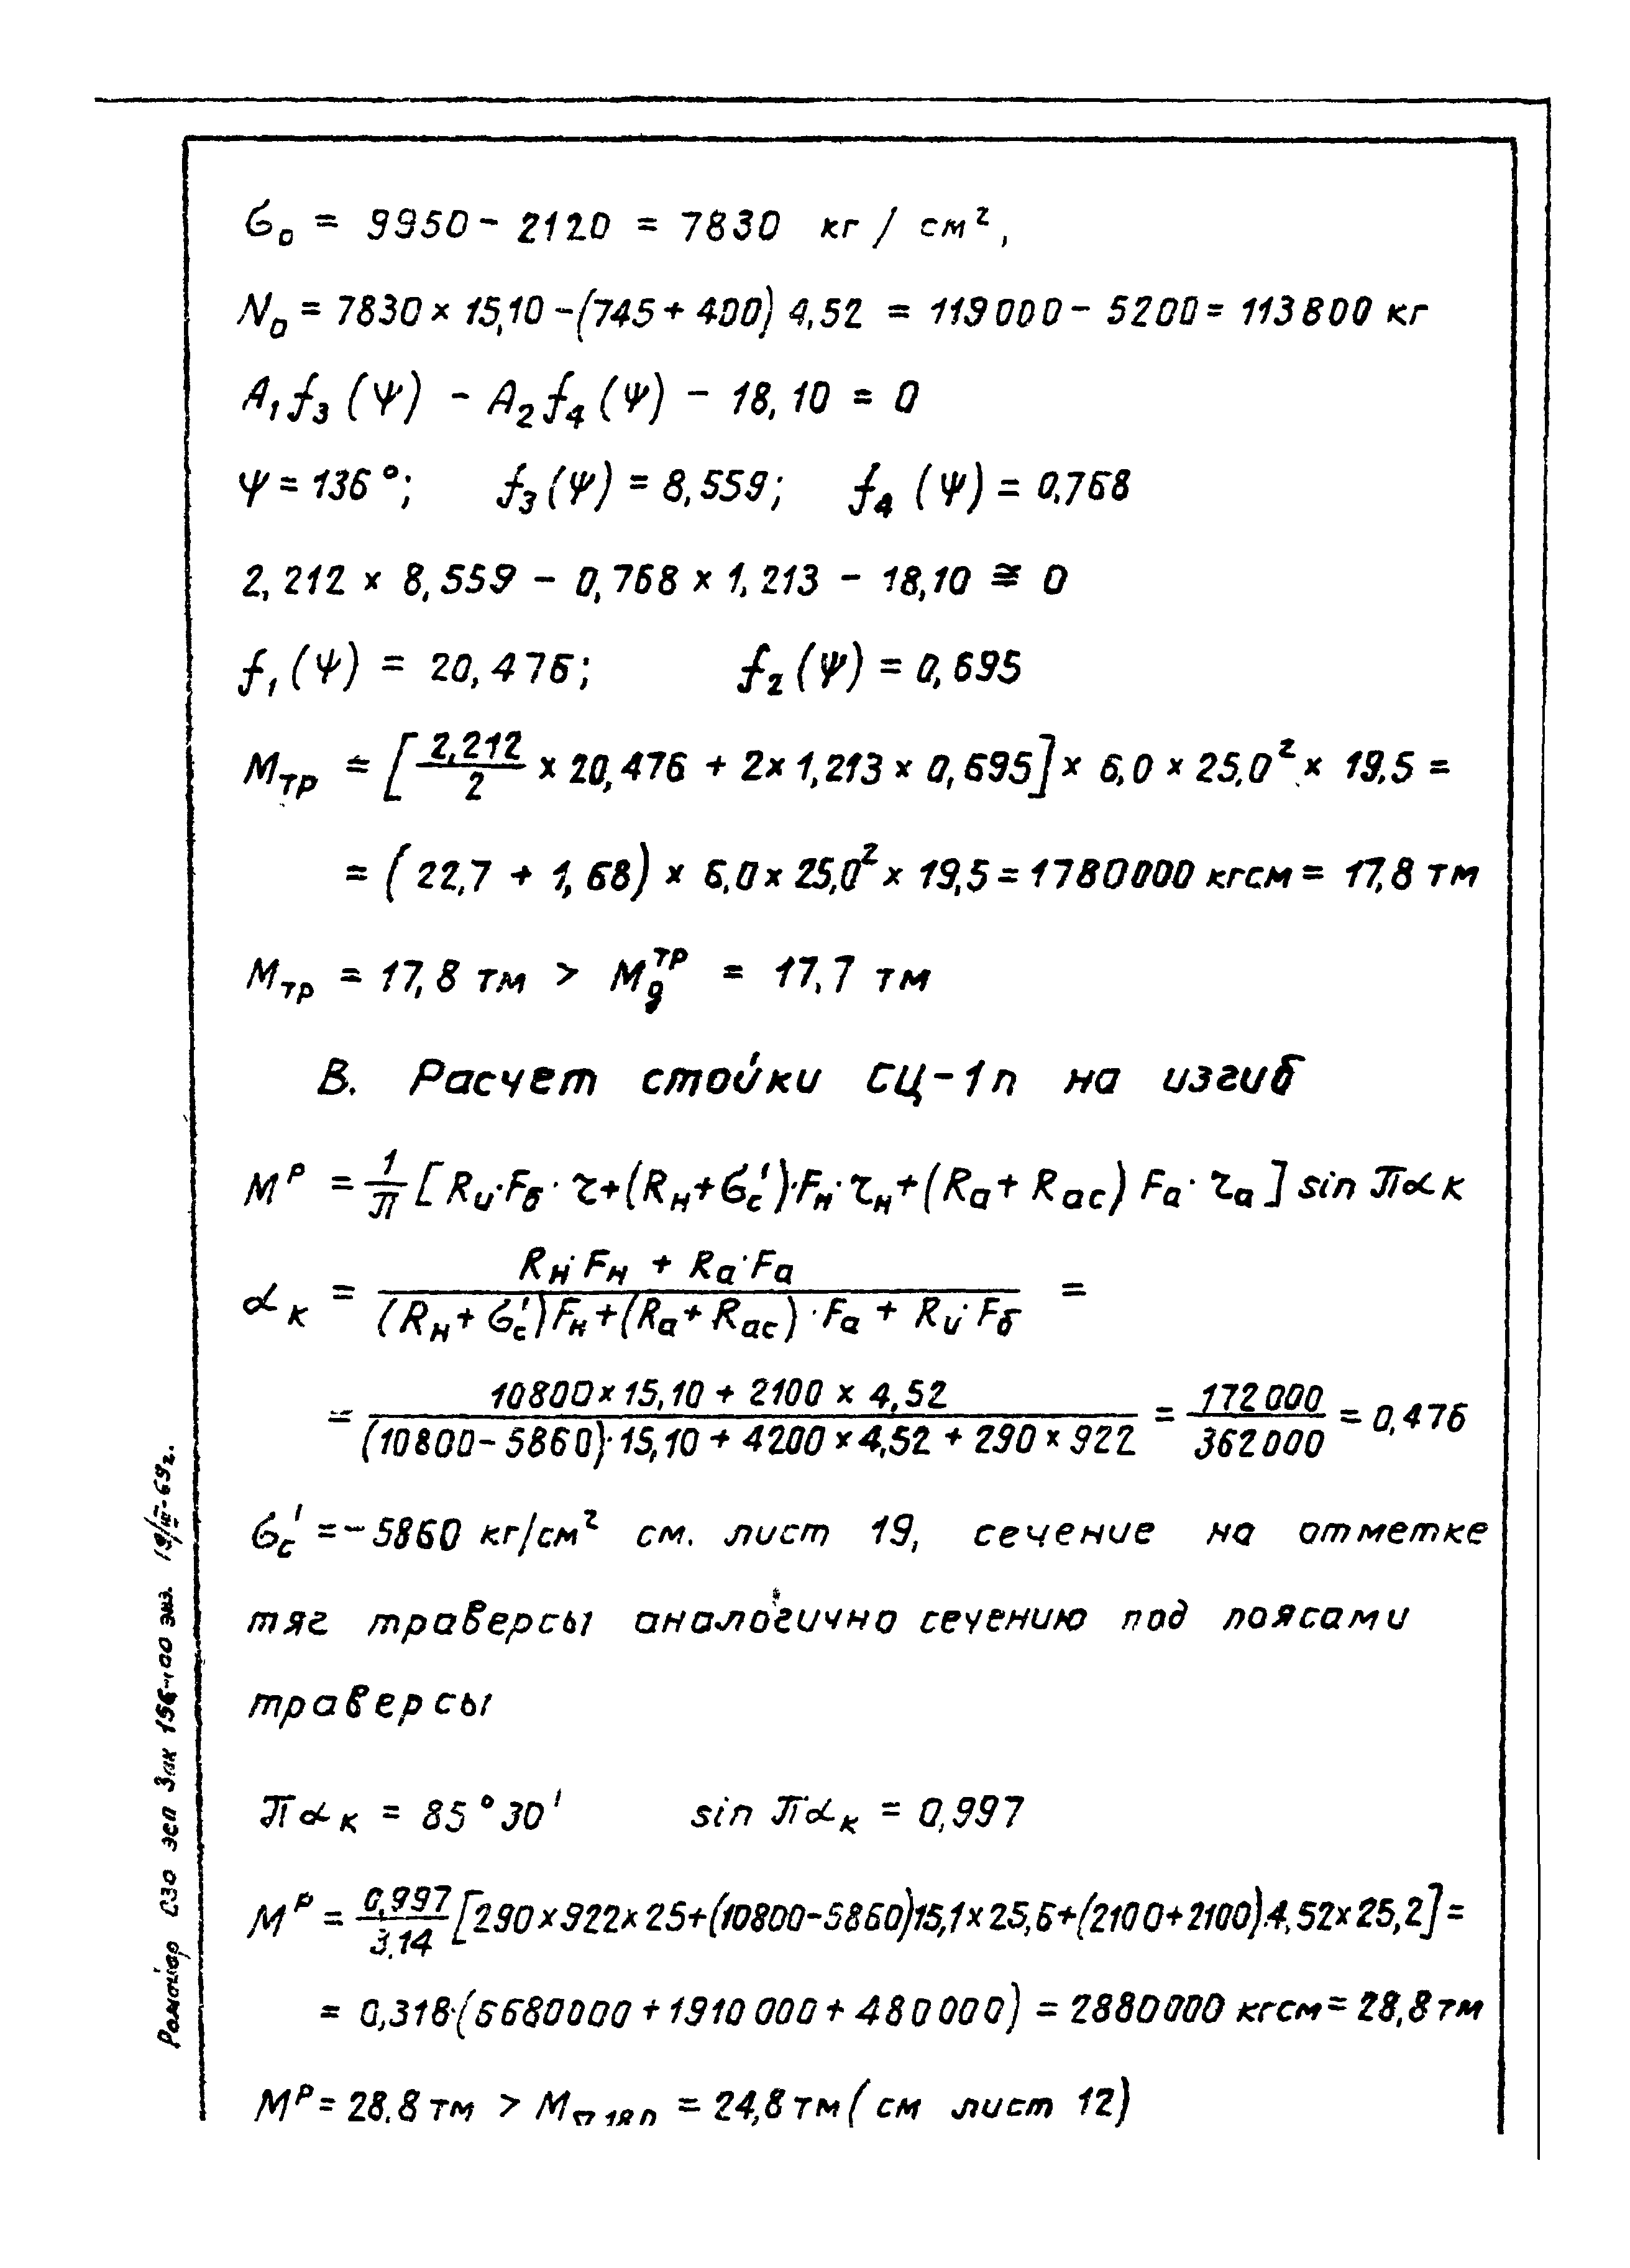 σ₀ = 9950 - 2120 = 7830 кг / см²,
N₀ = 7830 × 15,10 - (745 + 400) 4,52 = 119000 - 5200 = 113800 кг
A₁f₃(Ψ) - A₂f₄(Ψ) - 18,10 = 0
Ψ = 136°; f₃(Ψ) = 8,559; f₄(Ψ) = 0,768
2,212 × 8,559 - 0,768 × 1,213 - 18,10 ≅ 0
f₁(Ψ) = 20,476; f₂(Ψ) = 0,695
Mтр = [2,212/2 × 20,476 + 2 × 1,213 × 0,695] × 6,0 × 25,0² × 19,5 =
= (22,7 + 1,68) × 6,0 × 25,0² × 19,5 = 1780000 кгсм = 17,8 тм
Mтр = 17,8 тм > Mд^тр = 17,7 тм
В. Расчет стойки СЦ-1п на изгиб
M^р = 1/π [Rи·Fб·τ + (Rн + σс')·Fн·τн + (Rа + Rас) Fа·τа] sin παк
αк = (Rн·Fн + Rа·Fа)/((Rн + σс')Fн + (Rа + Rас)·Fа + Rи·Fб) =
= (10800 × 15,10 + 2100 × 4,52)/((10800 - 5860)·15,10 + 4200 × 4,52 + 290 × 922) = 172000/362000 = 0,476
σс' = - 5860 кг/см² см. лист 19, сечение на отметке
тяг траверсы аналогично сечению под поясами
траверсы
παк = 85°30' sin παк = 0,997
M^р = 0,997/3,14 [290×922×25+(10800-5860)15,1×25,6+(2100+2100)·4,52×25,2] =
= 0,318·(6680000 + 1910000 + 480000) = 2880000 кгсм = 28,8 тм
M^р = 28,8 тм > M = 24,8 тм (см лист 12)
СЗО ЭСП Зак 156-100 экз. 19/III-69г.